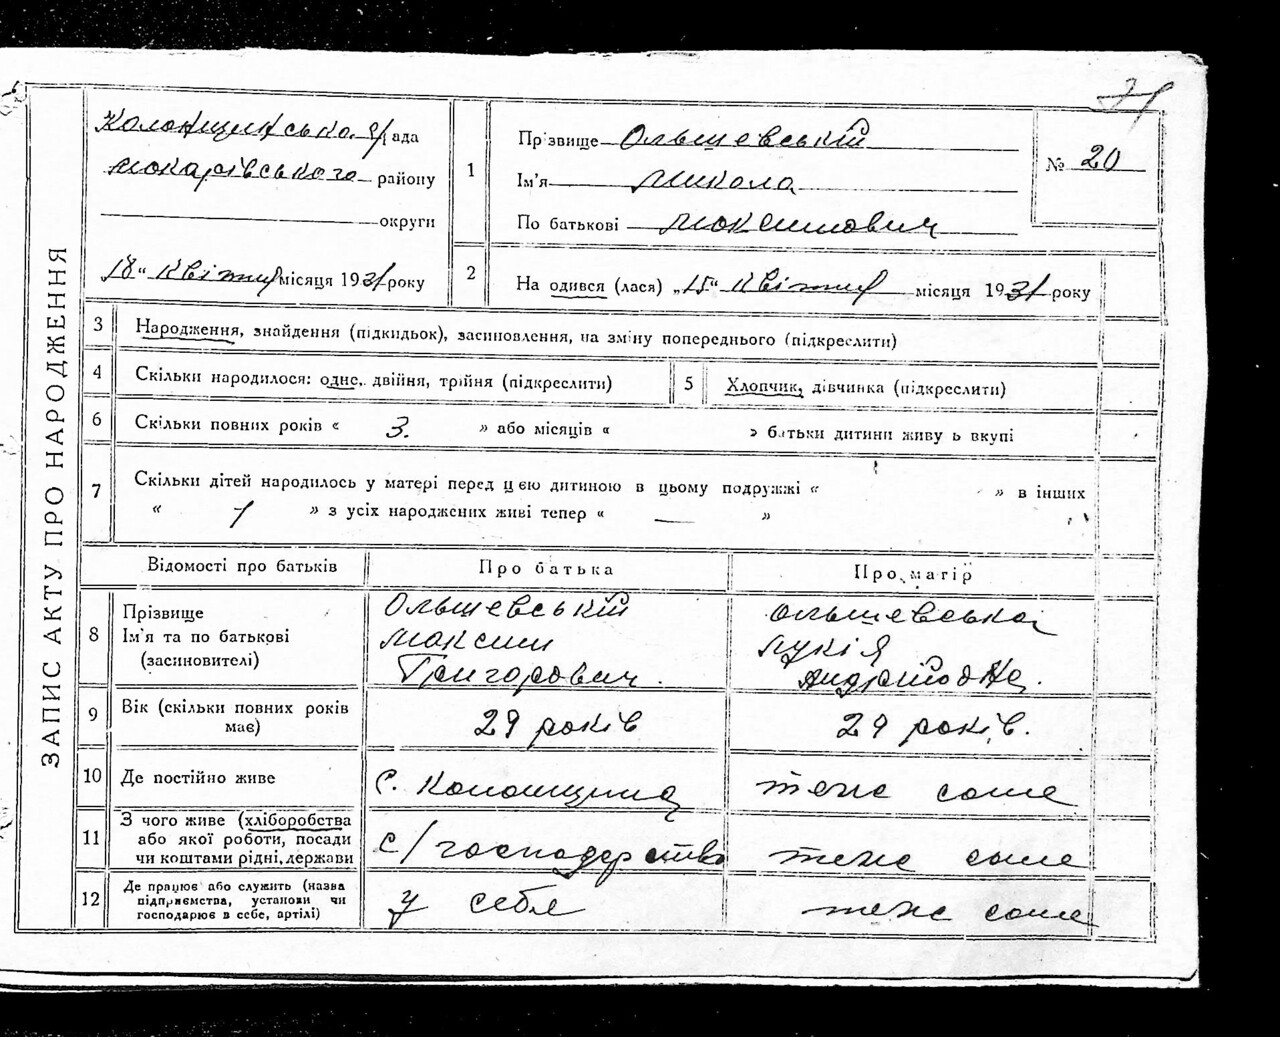 71
ЗАПИС АКТУ ПРО НАРОДЖЕННЯ
Колонщинська с/рада
Макарівського району
округи
18 " квітня місяця 1931 року
1
Прізвище Ольшевський
Ім'я Микола
По батькові Максимович
№ 20
2
На одився (лася) „15" квітня місяця 1931 року
3 Народження, знайдення (підкидьок), засиновлення, на зміну попереднього (підкреслити)
4 Скільки народилося: одне, двійня, трійня (підкреслити)
5 Хлопчик, дівчинка (підкреслити)
6 Скільки повних років « 3. » або місяців « » батьки дитини живу ь вкупі
7 Скільки дітей народилось у матері перед цією дитиною в цьому подружжі « » в інших
« 1 » з усіх народжених живі тепер « — »
Відомості про батьків Про батька Про матір
8 Прізвище
Ім'я та по батькові
(засиновителі)
Ольшевський
Максим
Григорович.
Ольшевська
Лукія
Андрійовна.
9 Вік (скільки повних років має) 29 років 29 років.
10 Де постійно живе с. Колонщина теж саме
11 З чого живе (хліборобства
або якої роботи, посади
чи коштами рідні, держави
с/господарство теж саме
12 Де працює або служить (назва
підприємства, установи чи
господарює в себе, артілі)
у себе теж саме